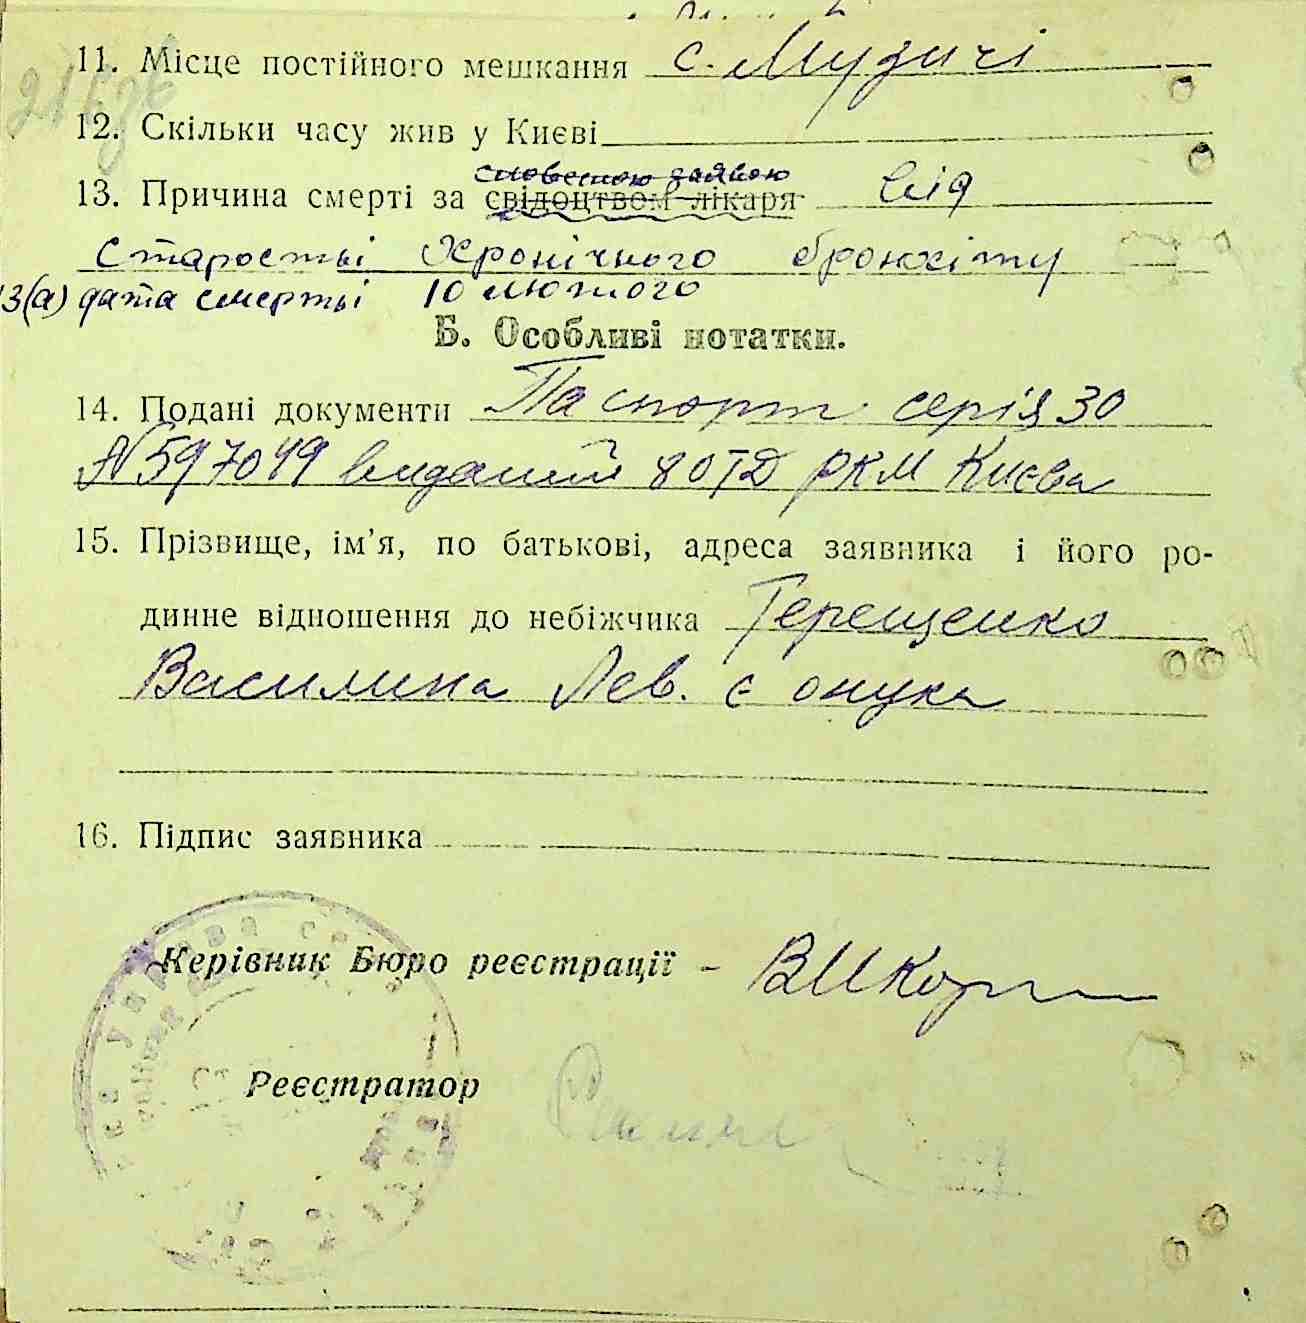 11. Місце постійного мешкання с. Музичі
12. Скільки часу жив у Києві
словесною заявою
13. Причина смерті за свідоцтвом лікаря від
старостьі Хронічного бронхіту
13(а) дата смертьі 10 лютого
Б. Особливі нотатки.
14. Подані документи Паспорт серія 30
№597049 виданий 8 ОТД РКМ Києва
15. Прізвище, ім’я, по батькові, адреса заявника і його ро-
динне відношення до небіжчика Терещенко
Василина Лев. є онука
16. Підпис заявника
Керівник Бюро реєстрації -
Реєстратор